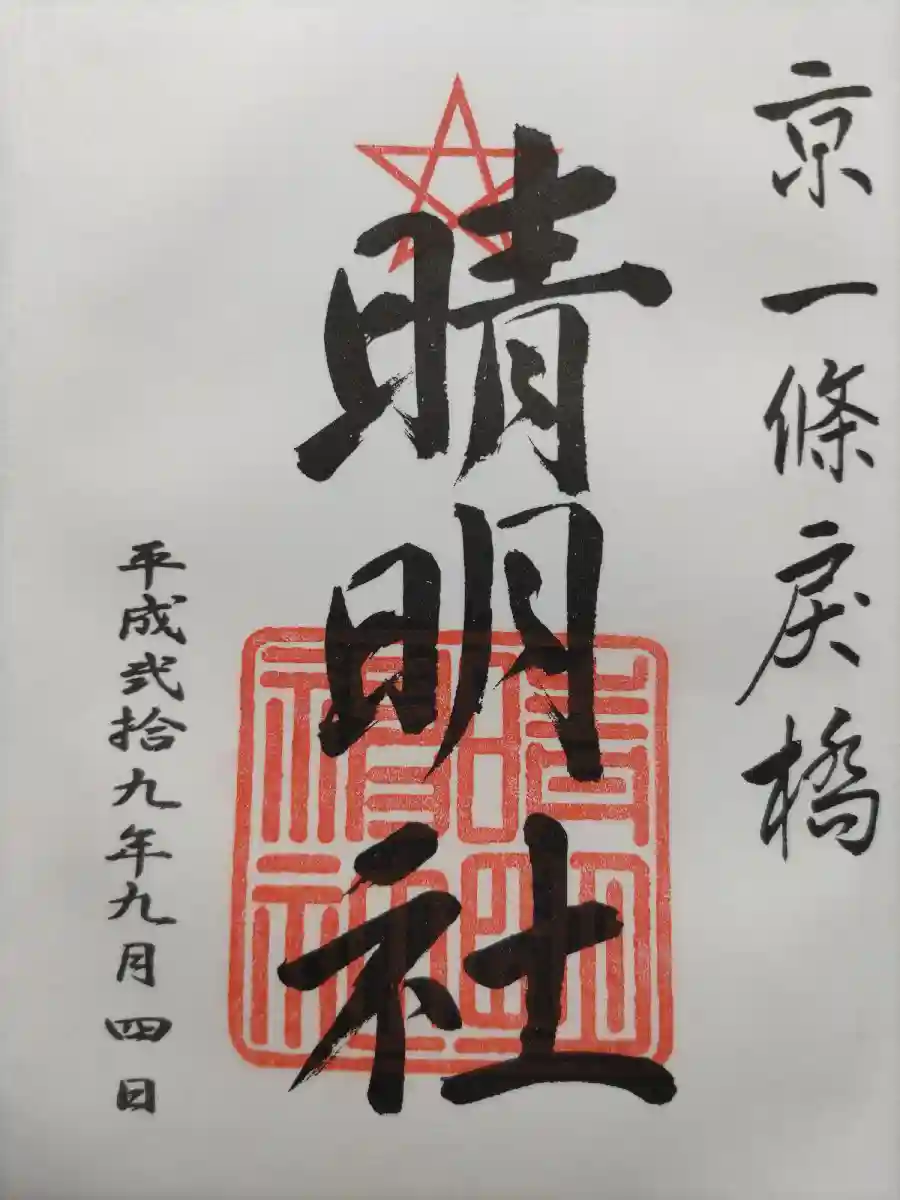 京一條戻橋
晴明社
晴明
神社
平成弐拾九年九月四日